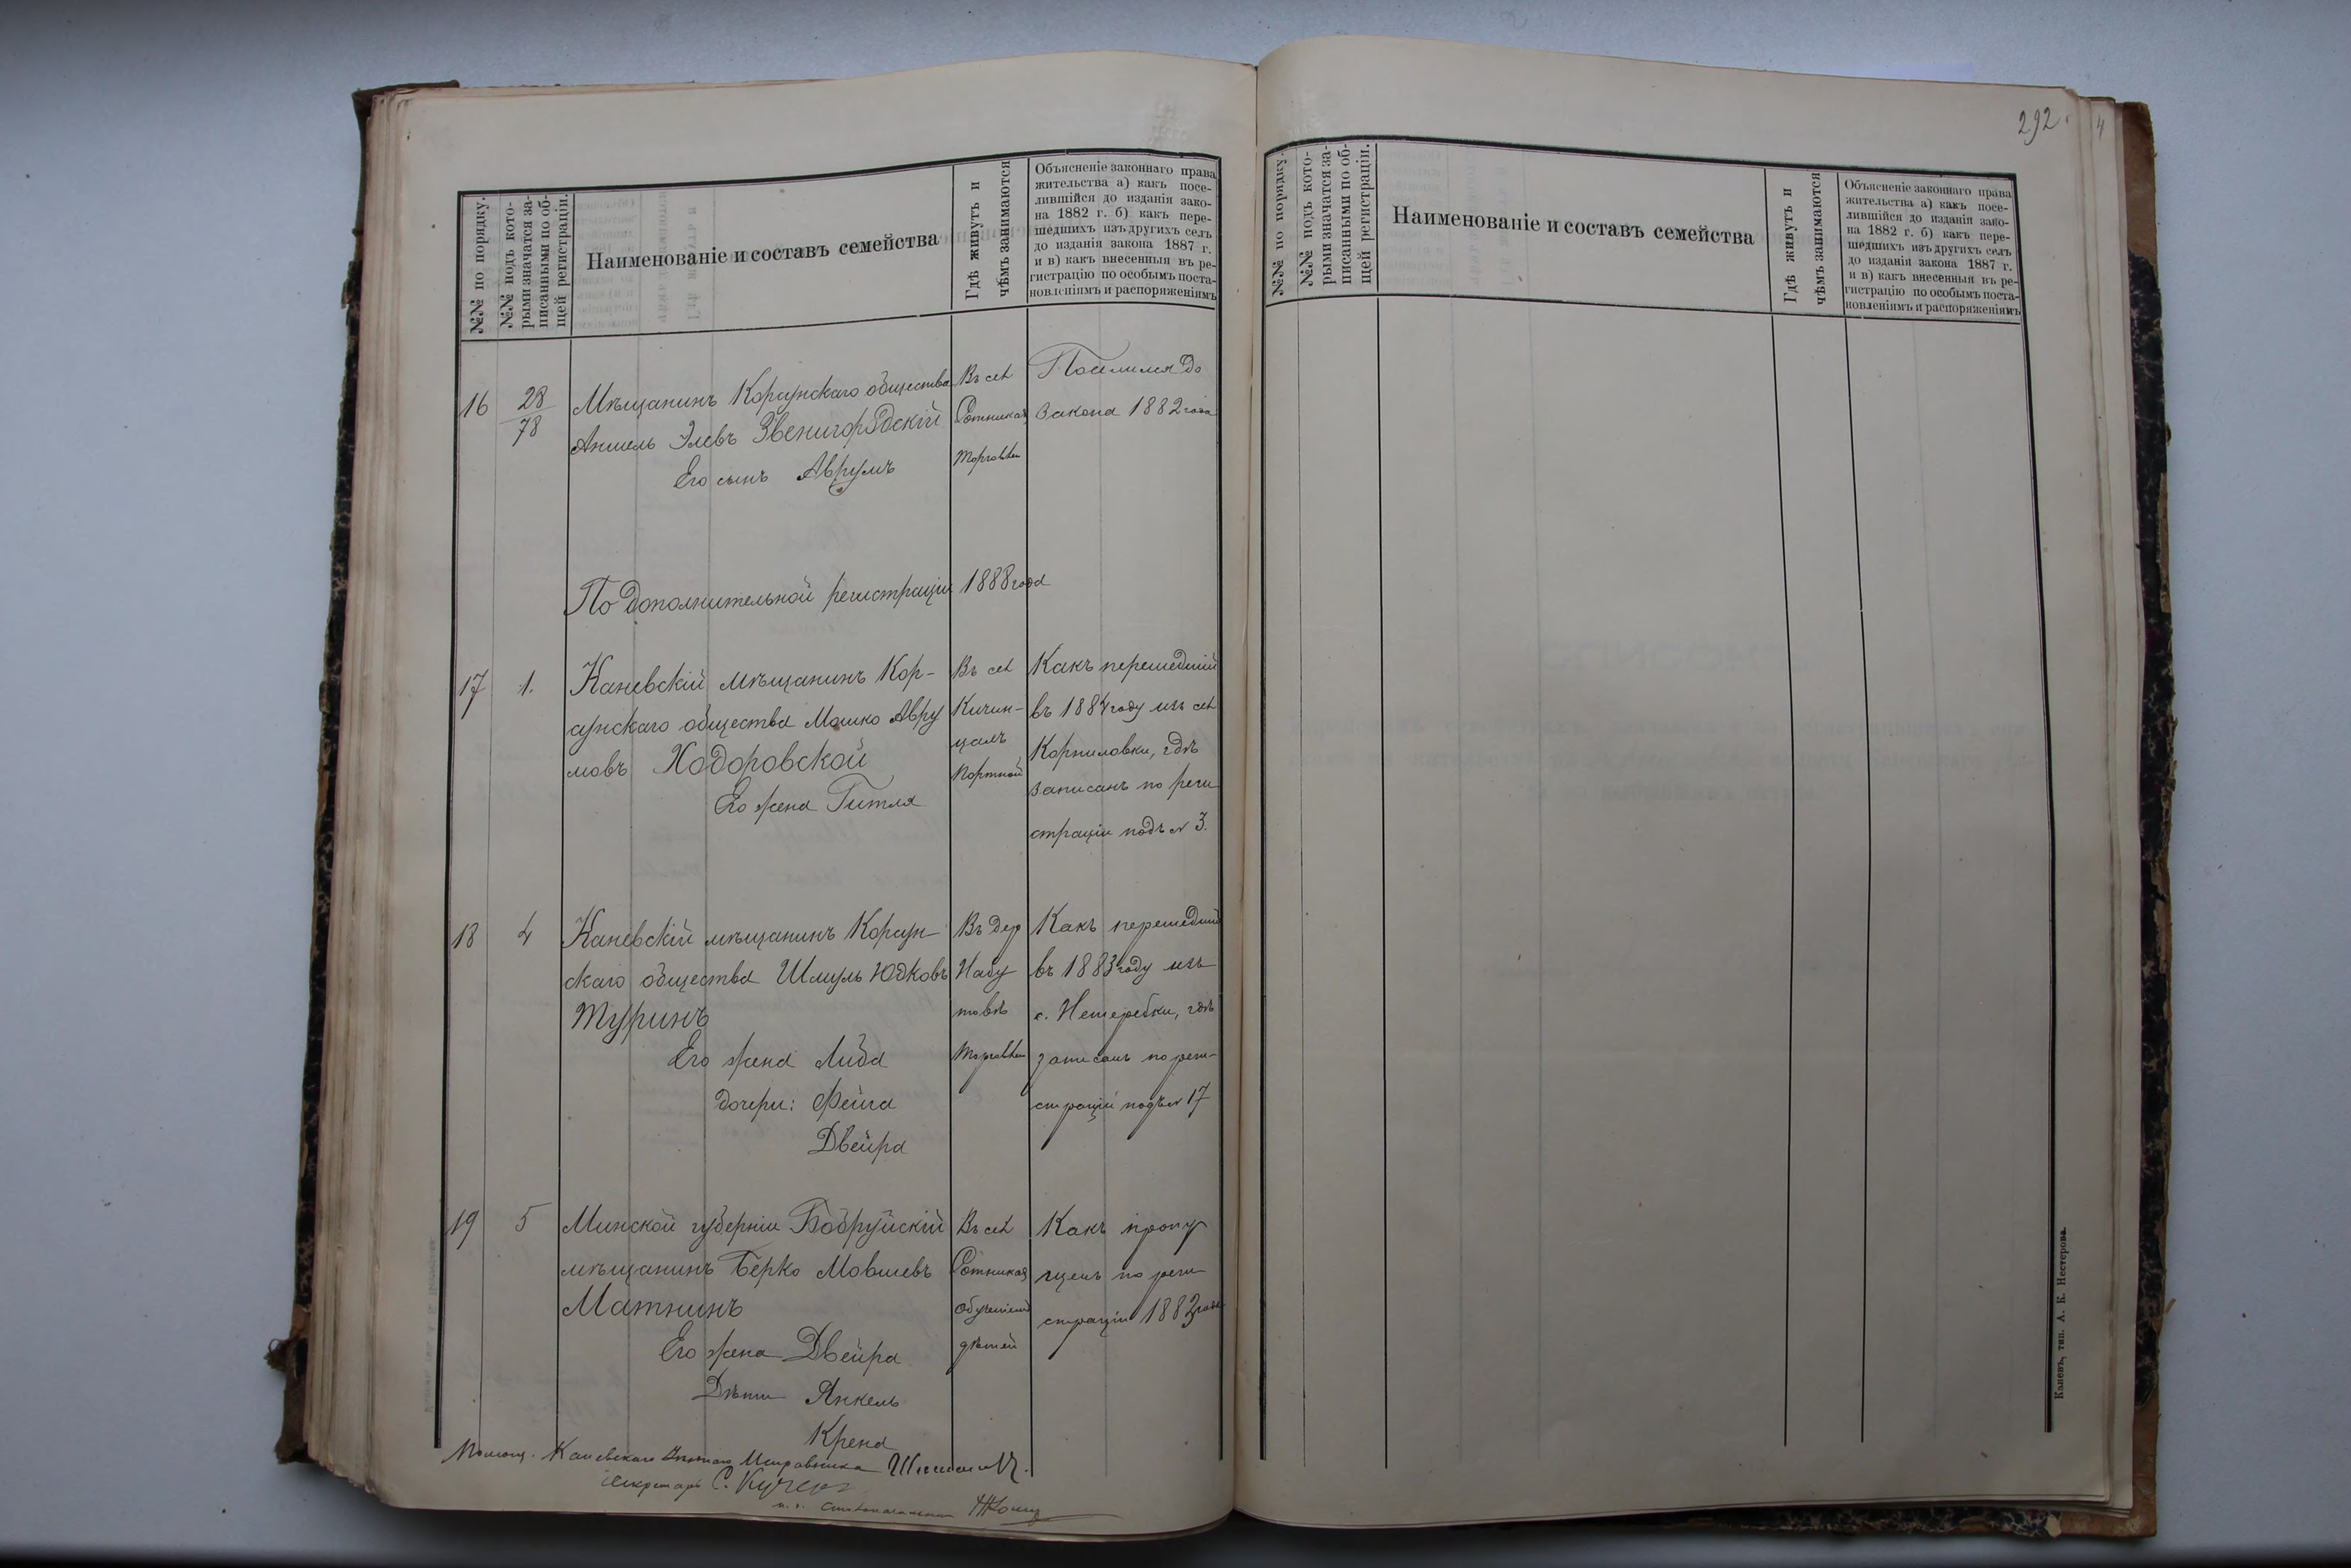 292.
4
№№ по порядку.
№№ подъ кото-
рыми значатся за-
писанными по об-
щей регистраціи.
Наименованіе и составъ семейства
Гдѣ живутъ и
чѣмъ занимаются
Объясненіе законнаго права
жительства а) какъ посе-
лившійся до изданія зако-
на 1882 г. б) какъ пере-
шедшихъ изъ другихъ селъ
до изданія закона 1887 г.
и в) какъ внесенныя въ ре-
гистрацію по особымъ поста-
новленіямъ и распоряженіямъ
16
28
78
Мѣщанинъ Корсунскаго общества
Аншель Элевъ Звенигородскій
Его сынъ Аврумъ
Въ сел
Сотникахъ
торговли
Поселился до
закона 1882 года
По дополнительной регистраціи 1888 года
17
1.
Каневскій мѣщанинъ Кор-
сунскаго общества Мошко Авру
мовъ Ходоровской
Его жена Гитля
Въ сел
Кичин-
цахъ
портной
Какъ перешедшій
въ 1884 году изъ сел
Корниловки, гдѣ
записанъ по реги
страціи подъ № 3.
18
4
Каневскій мѣщанинъ Корсун-
скаго общества Шмуль Юдковъ
Туринъ
Его жена Либа
дочери: Фейга
Двейра
Въ дер
Набу
товѣ
торговли
Какъ перешедшій
въ 1883 году изъ
с. Нетеребки, гдѣ
записанъ по реги-
страціи подъ № 17
19
5
Минской губерніи Бобруйскій
мѣщанинъ Берко Мовшевъ
Матнинъ
Его жена Двейра
Дѣти Янкель
Крена
Въ сел
Сотникахъ
обученіемъ
дѣтей
Какъ пропу
щенъ по реги-
страціи 1882 года
Помощ. Каневскаго Уѣзднаго Исправника
Секретарь С. Кучер
№№ по порядку.
№№ подъ кото-
рыми значатся за-
писанными по об-
щей регистраціи.
Наименованіе и составъ семейства
Гдѣ живутъ и
чѣмъ занимаются
Объясненіе законнаго права
жительства а) какъ посе-
лившійся до изданія зако-
на 1882 г. б) какъ пере-
шедшихъ изъ другихъ селъ
до изданія закона 1887 г.
и в) какъ внесенныя въ ре-
гистрацію по особымъ поста-
новленіямъ и распоряженіямъ
Каневъ, тип. А. К. Нестерова.